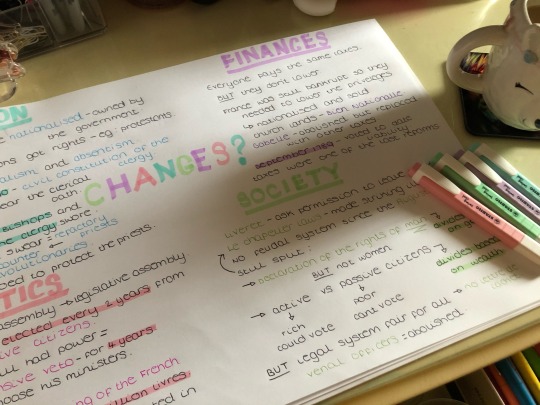 FINANCES
Everyone pays the same taxes.
BUT they don't lower
France was still bankrupt so they
needed to lower the privileges
↳ nationalised and sold
church lands - Bien Nationale
Gabelle - abolished but replaced
with other taxes
September 1789
taxes were one of the last reforms
ON
nationalised - owned by
the government
ons got rights - eg: protestants.
alism and absenteeism
- civil constitution of the
clergy
ear the clerical
oath.
Bishops and
the clergy swore.
swear = refractory
priests
counter
volutionaries
eed to protect the priests.
CHANGES?
SOCIETY
- ask permission to leave
le chapelier laws - made striking
No feudal system since the
still split:
→ Declaration of the rights of man
BUT not women
→ active vs passive citizens
rich
could vote
poor
cant vote
divides
divides based
on wealth
BUT Legal system fair for all
venal officers = abolished.
TICS
assembly → legislative assembly
elected every 2 years from
ive citizens.
ill had power =
nsive veto - for 4 years.
oose his ministers.
ng of the French
llion livres.
ted in